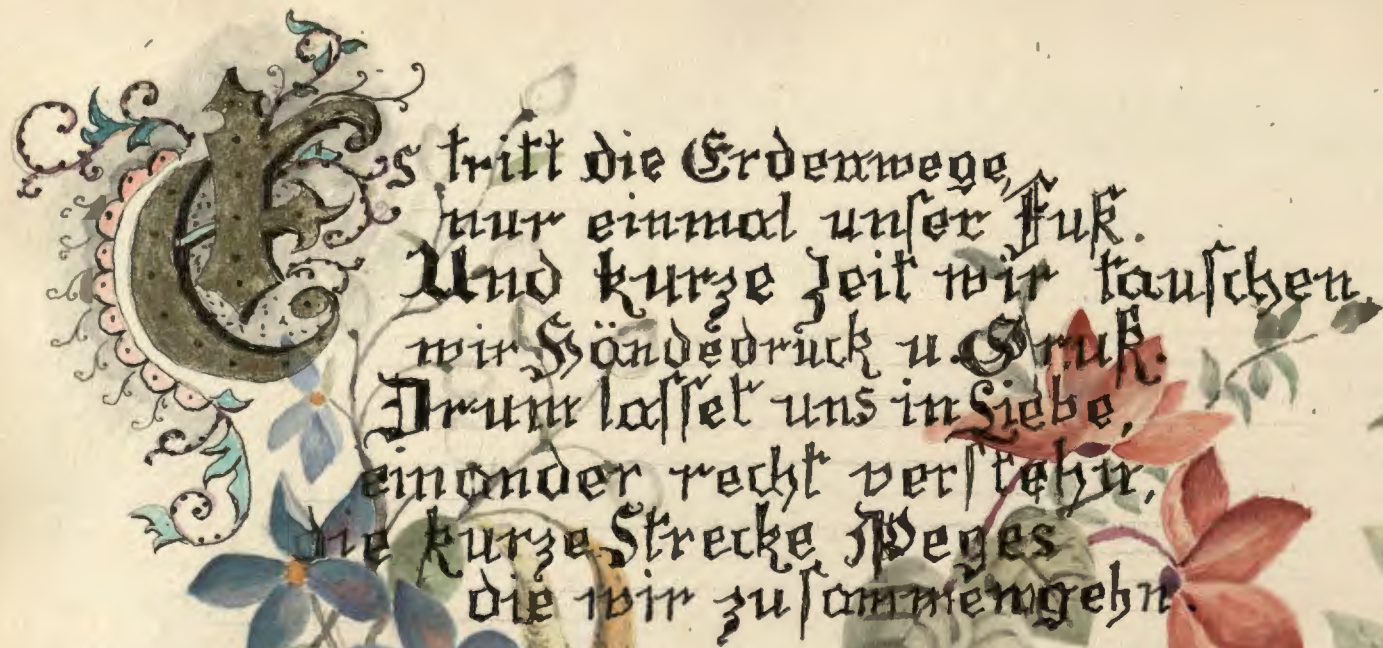 Es tritt die Erdenwege,
nur einmal unser Fuß.
Und kurze Zeit wir tauschen
wir Händedruck u. Gruß.
Drum lasset uns in Liebe,
einander recht verstehn,
die kurze Strecke Weges
die wir zusammengehn.